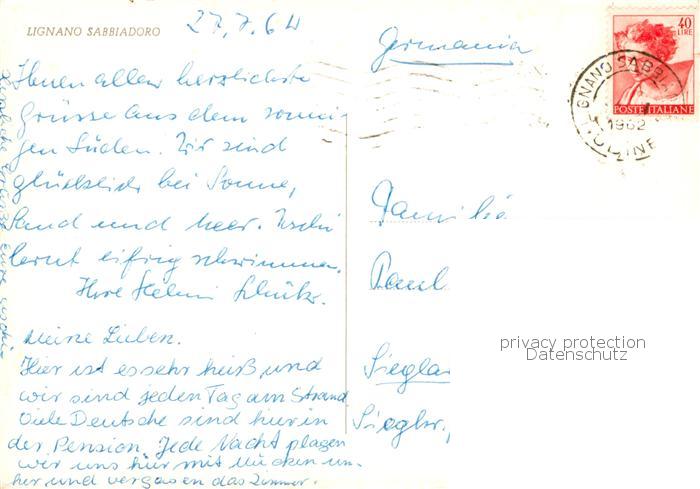 LIGNANO SABBIADORO
27.7.64
Germania
40
LIRE
POSTE ITALIANE
LIGNANO SABBIA
1962
UDINE
Ihnen allen herzlichste
Grüsse aus dem sonni-
gen Süden. Wir sind
glücklich bei Sonne,
Sand und Meer. Uschi
lernt eifrig schwimmen.
Ihre Helmi Schütz.
Meine Lieben.
Hier ist es sehr heiß und
wir sind jeden Tag am Strand
Viele Deutsche sind hier in
der Pension. Jede Nacht plagen
wir uns hier mit Mücken um-
her und vergasen das Zimmer.
Familie
Paul
Sieglar
Sieglar,
privacy protection
Datenschutz